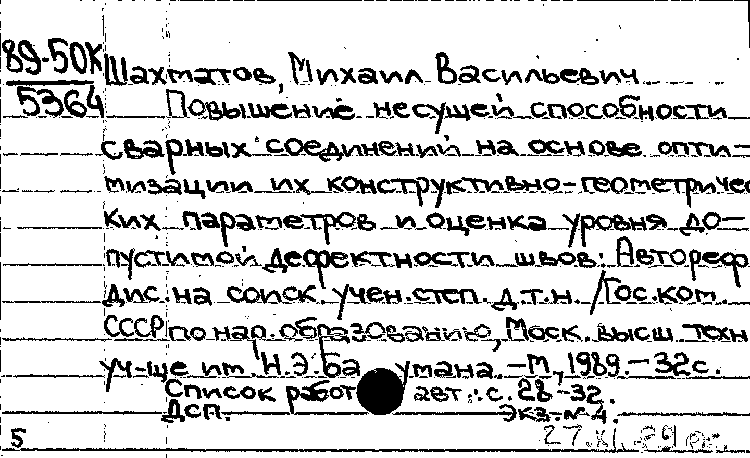 89-50К
5364
Шахматов, Михаил Васильевич
Повышение несущей способности
сварных соединений на основе опти-
мизации их конструктивно-геометричес
ких параметров и оценка уровня до-
пустимой дефектности швов: Автореф
дис. на соиск. учен. степ. д.т.н. /Гос. ком.
СССР по нар. образованию, Моск. высш. техн
уч-ще им. Н.Э. Ба умана. - М., 1989. - 32 с.
Список работ авт.: с. 28-32.
ДСП. Экз. № 4.
5